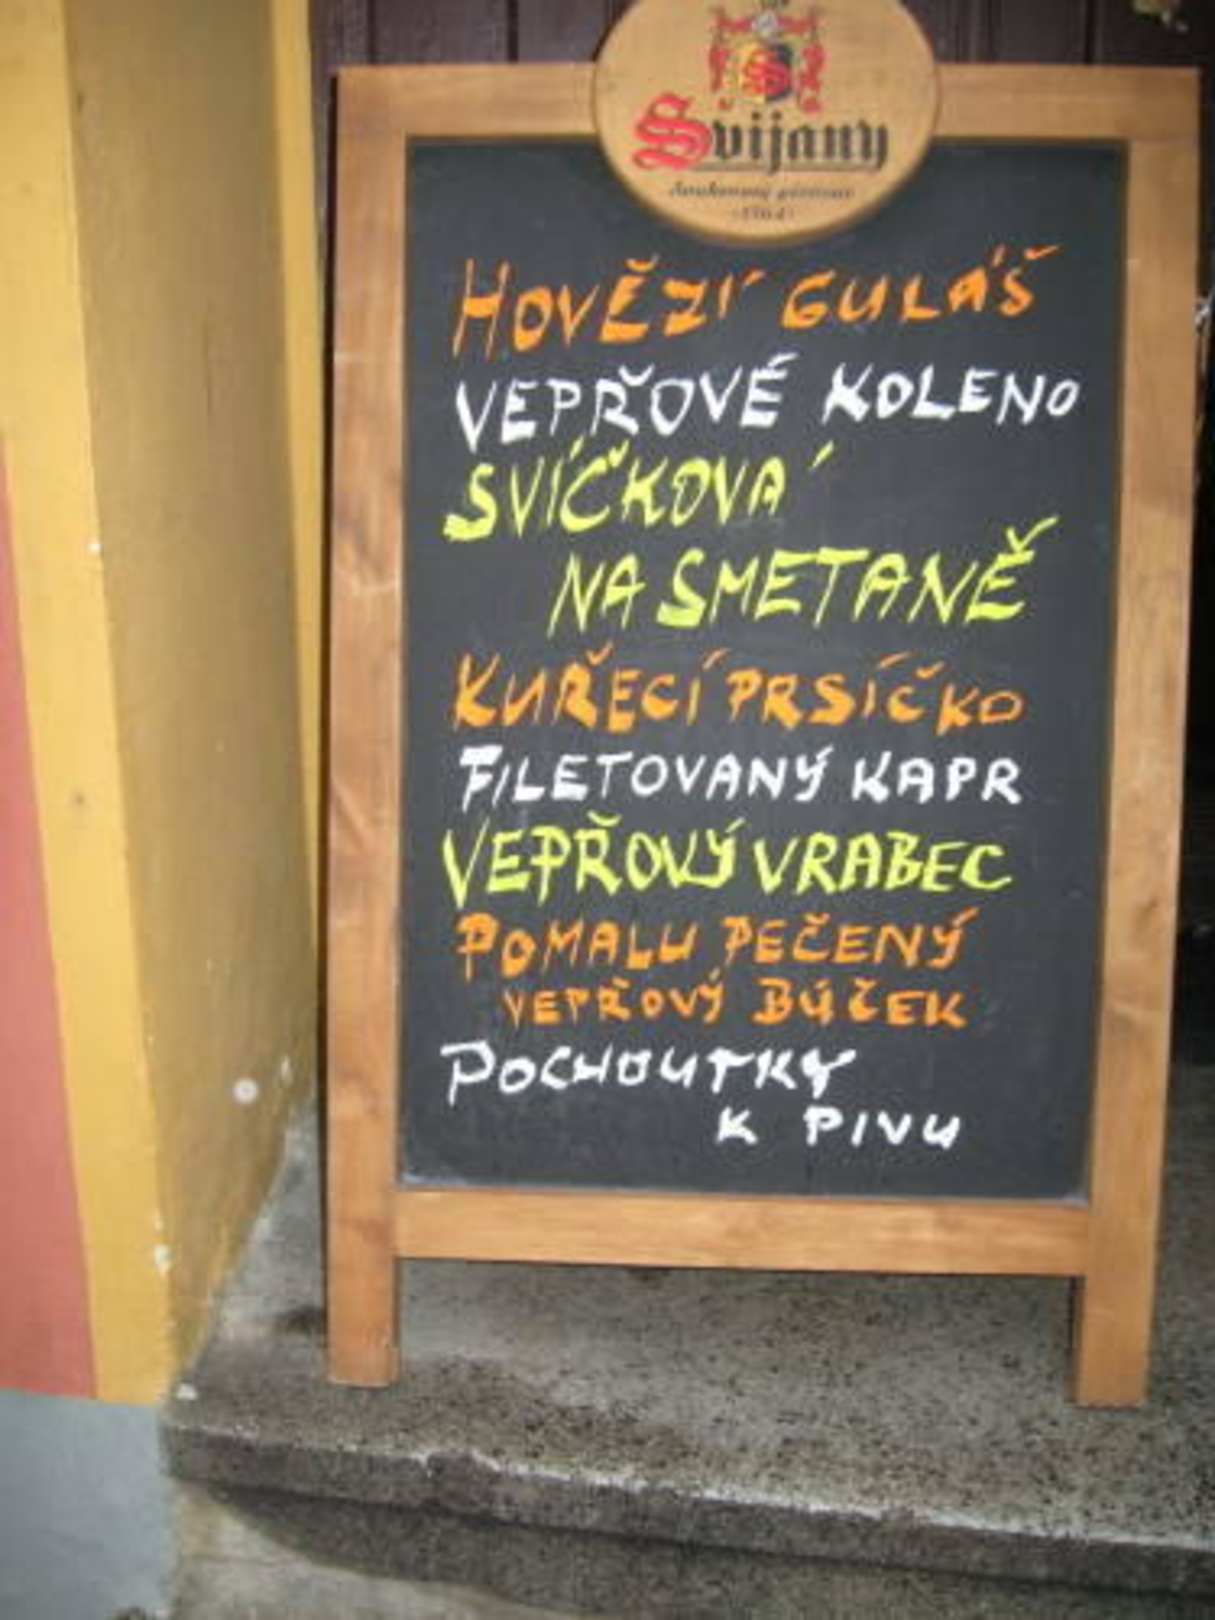 Svijany
HOVĚZÍ GULÁŠ
VEPŘOVÉ KOLENO
SVÍČKOVÁ
NA SMETANĚ
KUŘECÍ PRSÍČKO
FILETOVANÝ KAPR
VEPŘOVÝ VRABEC
POMALU PEČENÝ
VEPŘOVÝ BŮČEK
POCHOUTKY
K PIVU